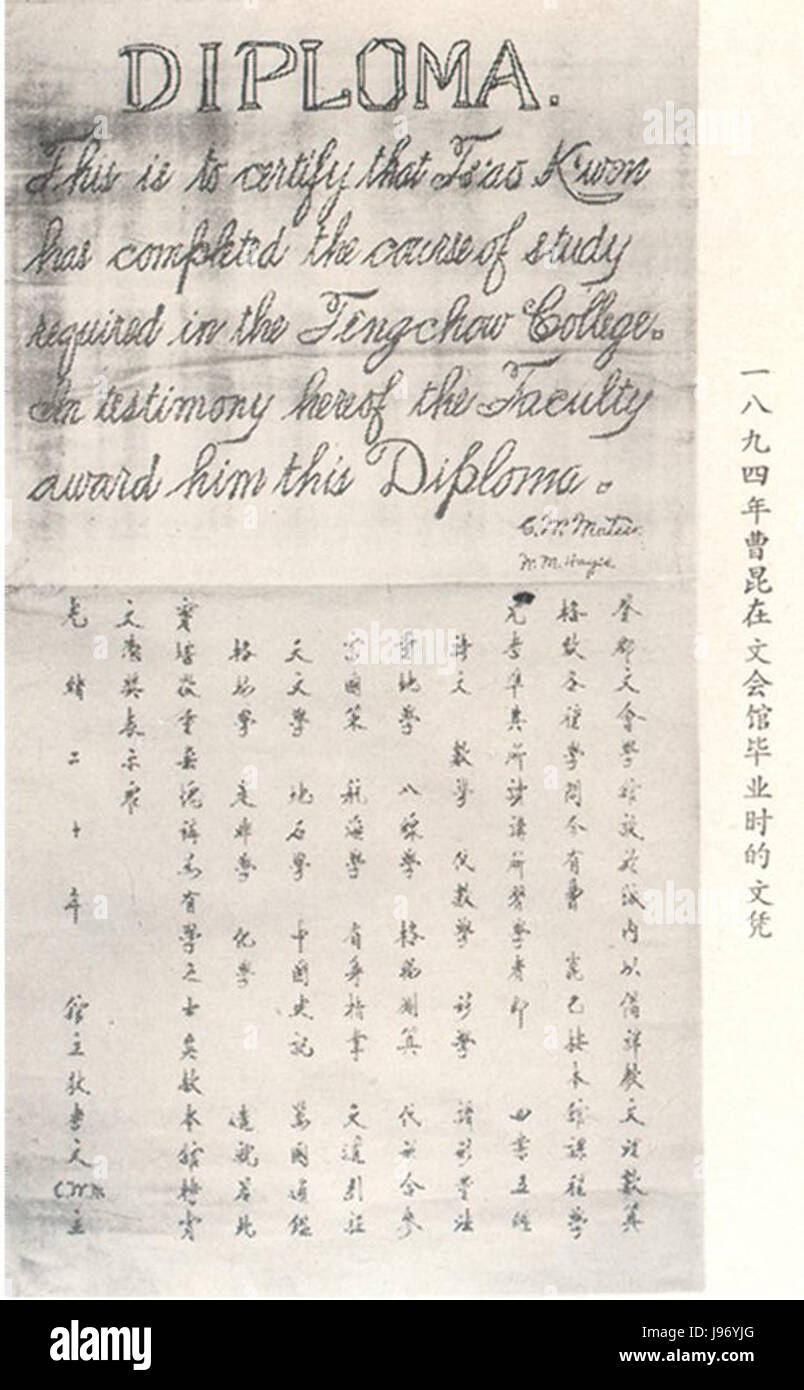 DIPLOMA.
This is to certify that Ts'ao K'won
has completed the course of study
required in the Tengchow College.
In testimony hereof the Faculty
award him this Diploma.
C. W. Mateer.
W. M. Hayes
登郡文會學館設於城內以備詳教文理數算
格致各種學問今有曹 崑已按本館課程學
完考準其所讀講所習學者即 四書五經
詩文 數學 代數學
地學 八線學 格物測算 代
富國策 航海學 省身指掌 天道引證
天文學 地石學 中國史記 萬國通鑑
格物學 是非學 化學
有學之士 本館
文憑
光緒二十年 館主狄考文 C.W.M. 立
一八九四年曹昆在文会馆毕业时的文凭
alamy
alamy
Image ID: J96YJG
www.alamy.com